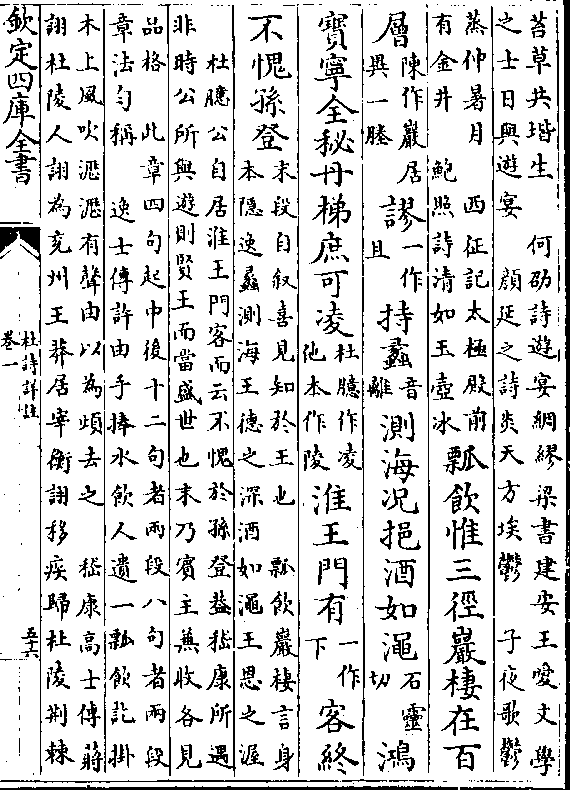 苔草共堦生　何劭詩遊宴綢繆梁書建安王愛文學
之士日與遊宴　顔延之詩炎天方埃鬱　子夜歌鬱
蒸仲暑月　西征記太極殿前
有金井　鮑照詩清如玉壺冰
瓢飲惟三徑巖棲在百
層
陳作巖居
異一塍
謬
一作
且
持蠡
音
離
測海况挹酒如澠
石靈
切
鴻
寳寧全秘丹梯庶可凌
杜臆作凌
他本作陵
淮王門有
一作
下
客終
不愧孫登
末段自叙喜見知於王也　瓢飲巖棲言身
本隠逸蠡測海王德之深酒如澠王恩之渥
杜臆公自居淮王門客而云不愧於孫登葢嵇康所遇
非時公所與遊則賢王而當盛世也末乃賓主兼收各見
品格　此章四句起中後十二句者兩段八句者兩段
章法勻稱　逸士傳許由手捧水飲人遺一瓢飲訖掛
木上風吹瀝瀝有聲由以為煩去之　嵇康高士傳蔣
詡杜陵人詡為兖州王莽居宰衡詡移疾歸杜陵荆棘
欽定四庫全書
杜詩詳註
卷一
五十六